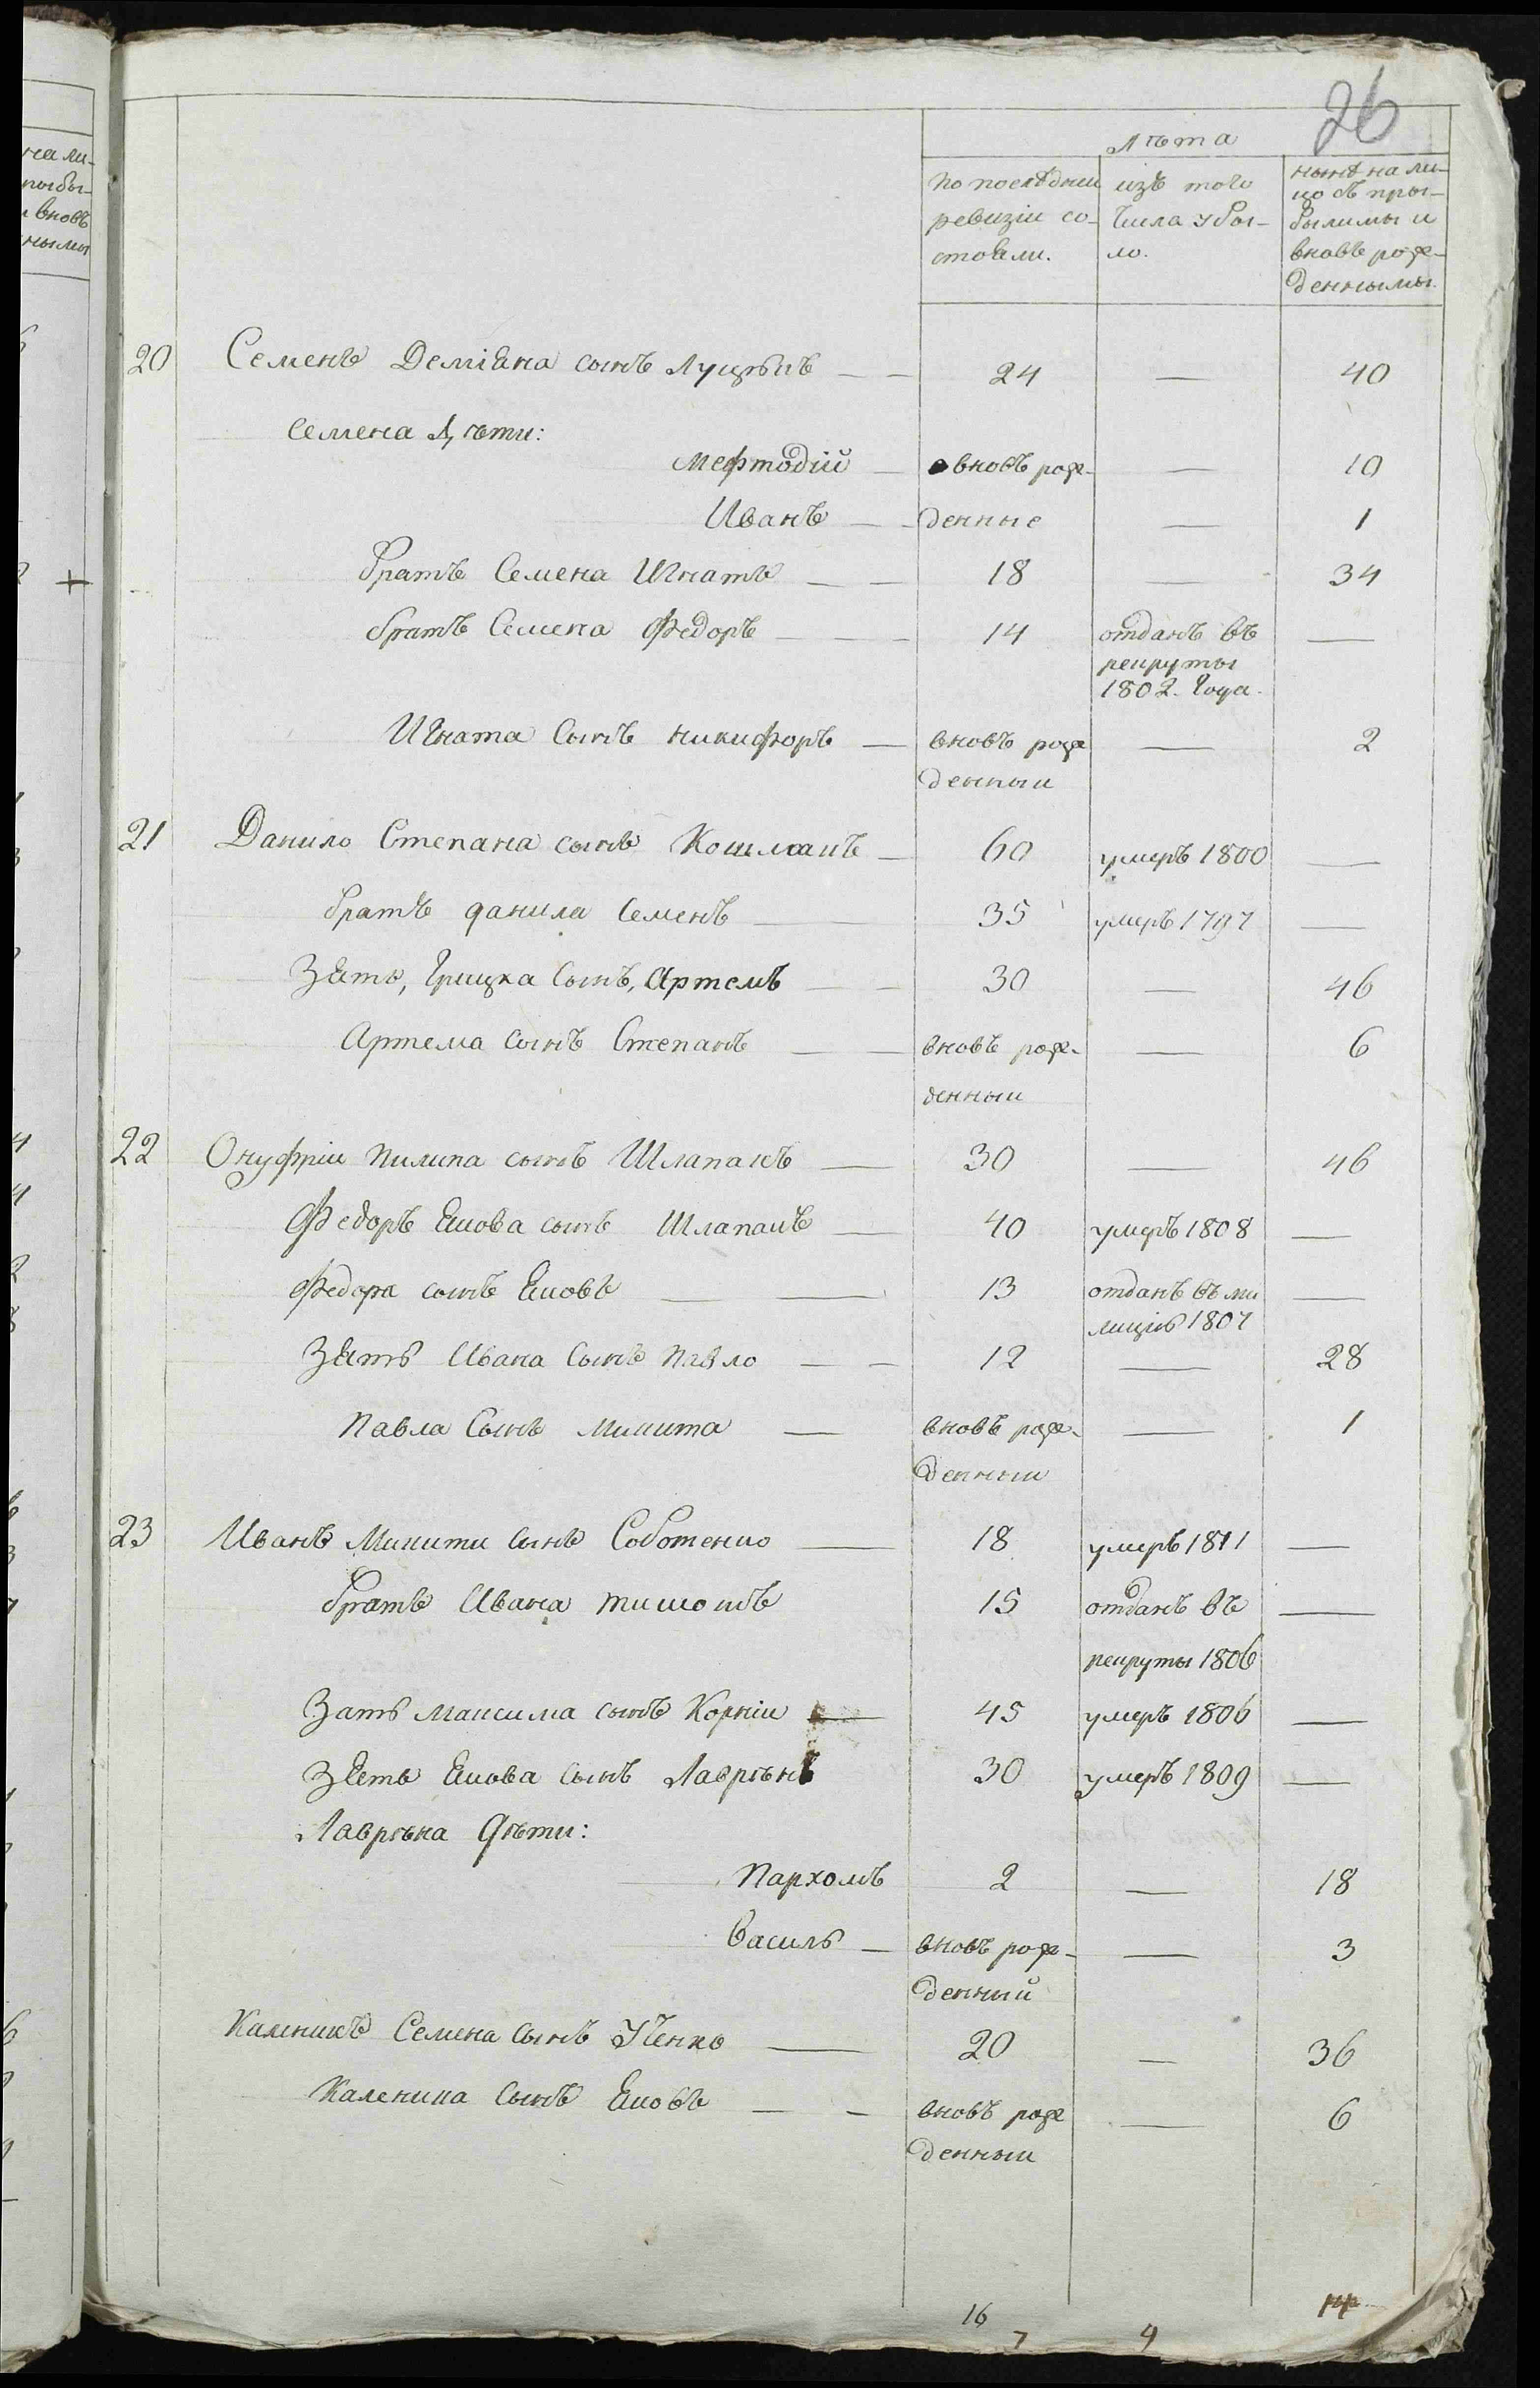 26
Лѣта
по послѣднеи ревизіи состояли.
изъ того числа убыло.
нынѣ на лицо съ прыбылимы и вновь рожденнымы.
20 Семенъ Деміяна сынъ Луцыкъ — 24 — 40
Семена Дѣти:
Мефтодій — вновь рож- — 10
Иванъ — денные — 1
братъ Семена Игнатъ — 18 — 34
братъ Семена Федоръ — 14 отданъ въ —
рекруты
1802. Года.
Игната Сынъ Никифоръ — вновь рож — 2
денныи
21 Данило Степана сынъ — 60 умеръ 1800 —
братъ данила Семенъ — 35 умеръ 1797 —
Зять, Грицка Сынъ, Артемъ — 30 — 46
Артема Сынъ Степанъ — вновь рож- — 6
денныи
22 Онуфріи Пилипа сынъ Шлапакъ — 30 — 46
Федоръ Якова сынъ Шлапакъ — 40 умеръ 1808 —
Федора сынъ Яковъ — 13 отданъ въ ми —
лицію 1807
Зять Ивана Сынъ Павло — 12 — 28
Павла Сынъ Микита — вновь рож- — 1
денныи
23 Иванъ Микити сынъ — 18 умеръ 1811 —
братъ Ивана 15 отданъ въ —
рекруты 1806
Зать Максима сынъ Корніи — 45 умеръ 1806 —
зять Якова сынъ Лаврѣнъ 30 умеръ 1809 —
Лаврѣна дѣти:
Пархомъ 2 — 18
Василь — вновь рож- — 3
денный
Каленикъ Семена сынъ — 20 — 36
Каленика Сынъ Яковъ — вновь рож — 6
денныи
16
7 9